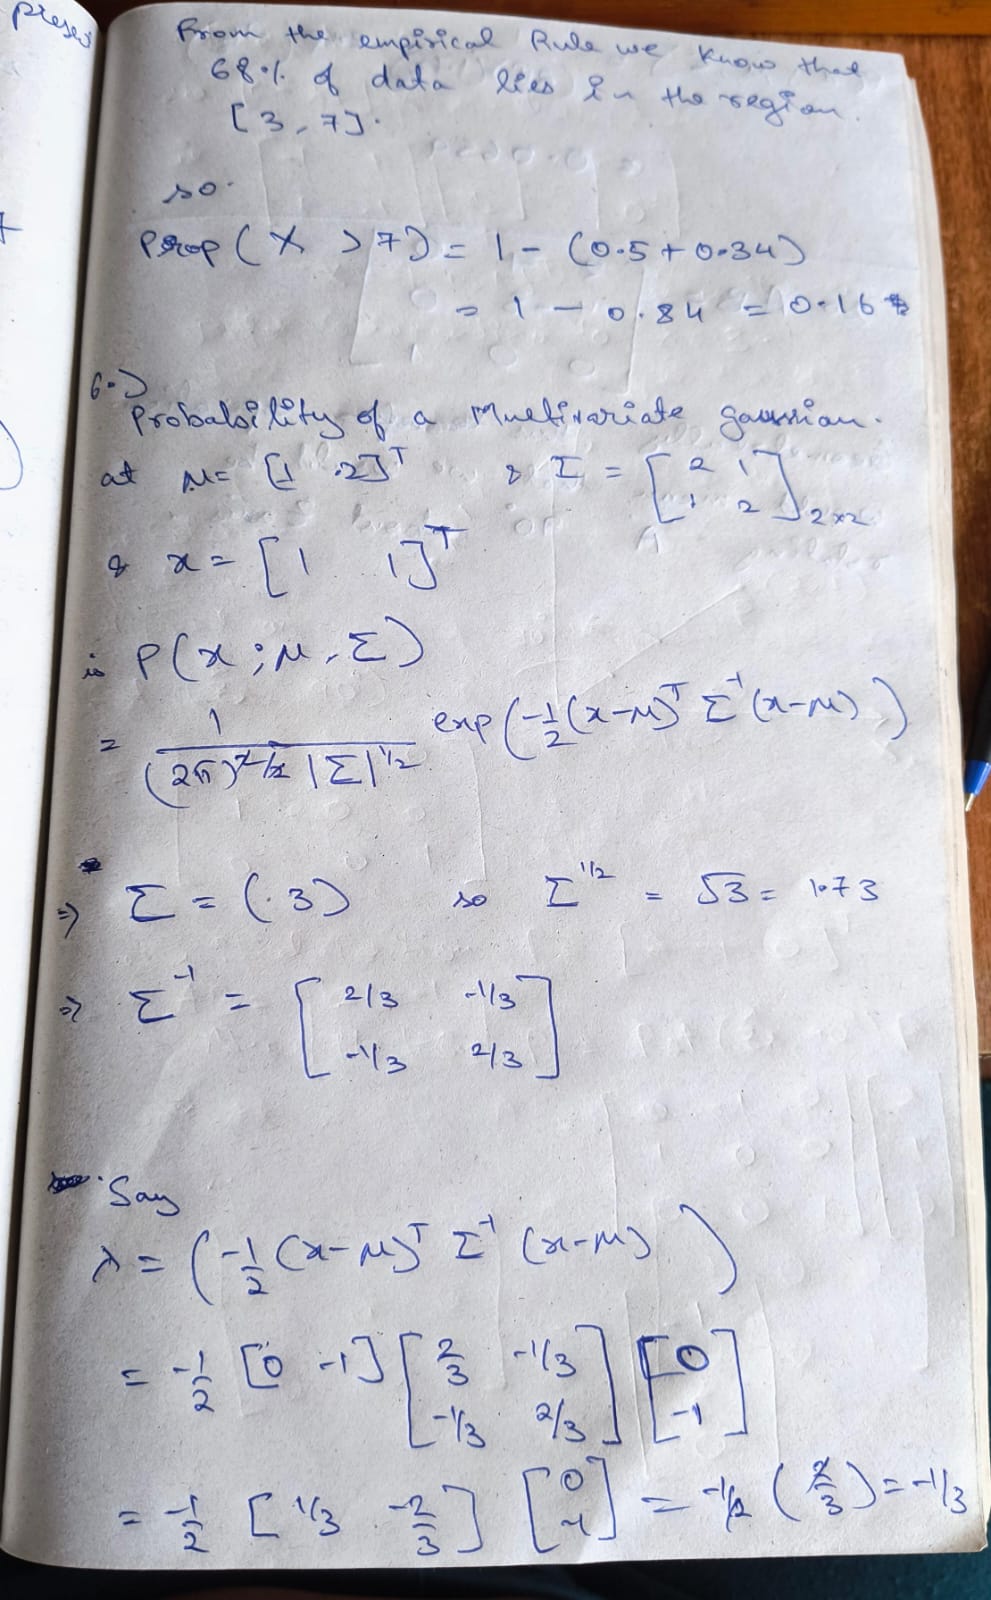 prese
From the empirical Rule we know that
68% of data lies in the region.
[3, 7].
so.
Prop(X > 7) = 1 - (0.5 + 0.34)
= 1 - 0.84 = 0.16
6.)
Probability of a Multivariate gaussian.
at μ = [1 2]ᵀ & Σ = [2 1
1 2]₂ₓ₂
& x = [1 1]ᵀ
is P(x ; μ, Σ)
= 1/((2π)^2/2 |Σ|^1/2) exp(-1/2 (x-μ)ᵀ Σ⁻¹ (x-μ))
⇒ Σ = (3) so Σ^1/2 = √3 = 1.73
⇒ Σ⁻¹ = [2/3 -1/3
-1/3 2/3]
Say
λ = (-1/2 (x-μ)ᵀ Σ⁻¹ (x-μ))
= -1/2 [0 -1] [2/3 -1/3
-1/3 2/3] [0
-1]
= -1/2 [1/3 -2/3] [0
-1] = -1/2 (2/3) = -1/3